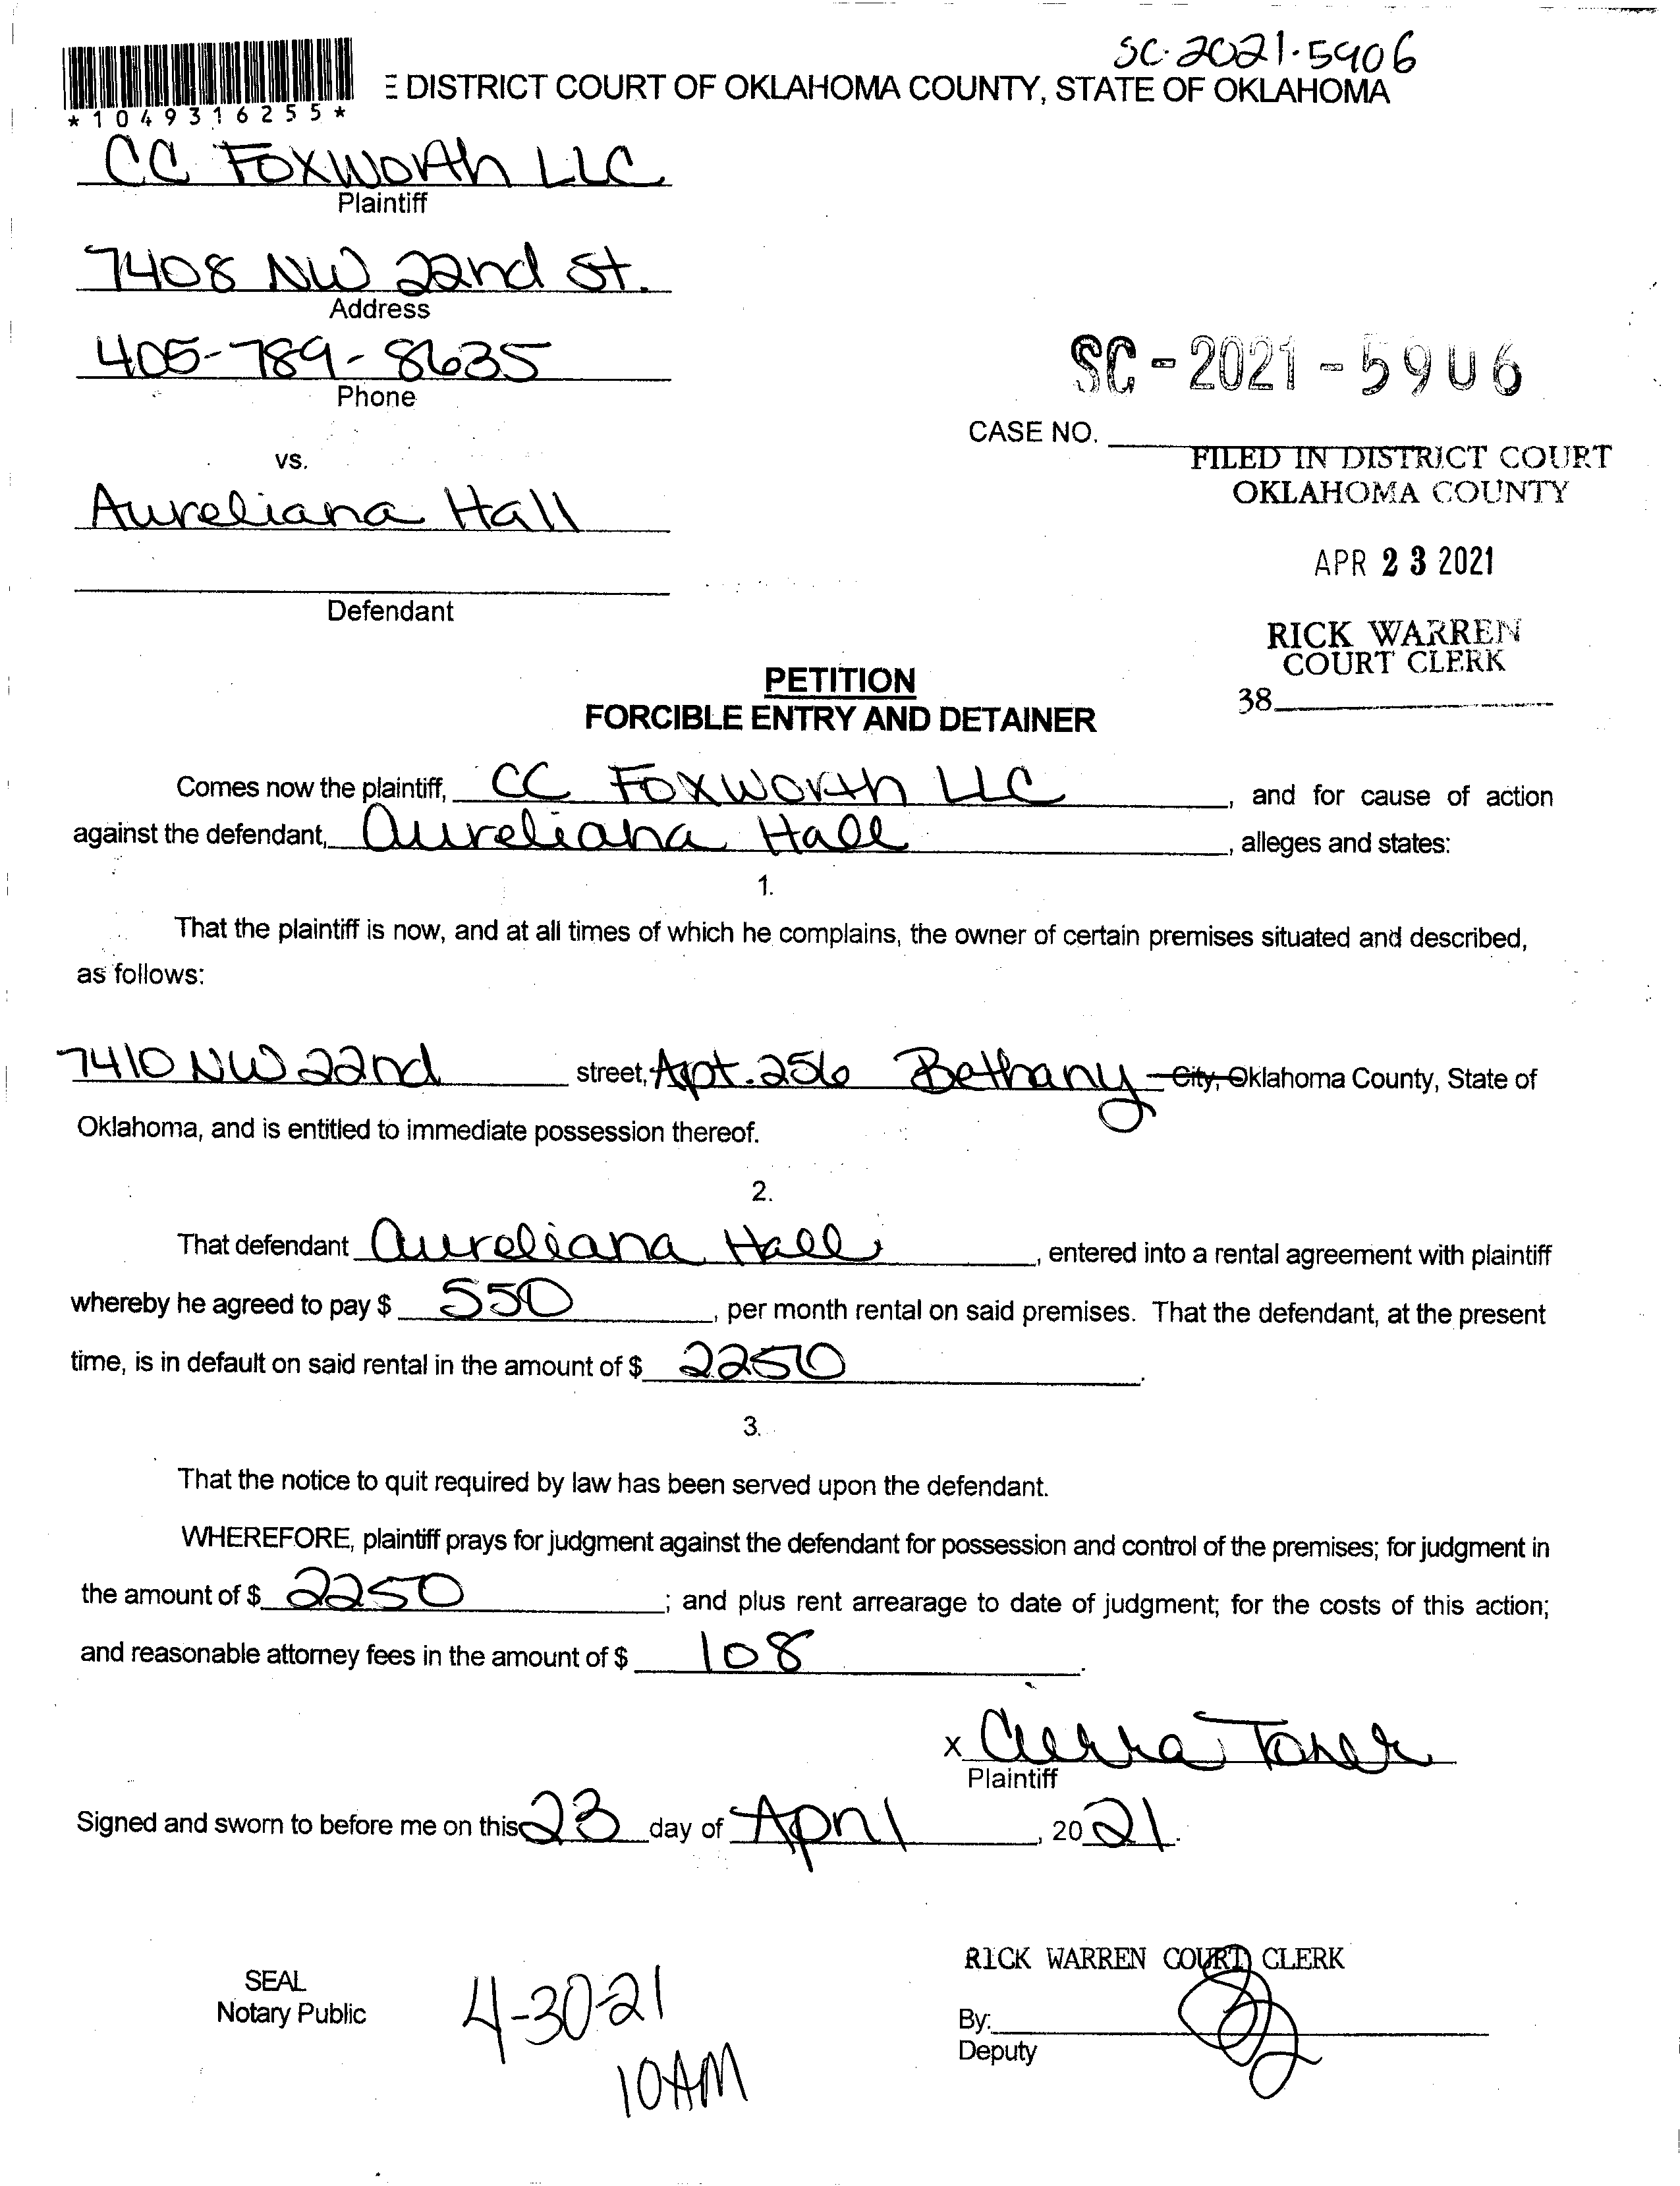 SC-2021-5906
E DISTRICT COURT OF OKLAHOMA COUNTY, STATE OF OKLAHOMA
*1049316255*
CC Foxworth LLC
Plaintiff
7408 NW 22nd St.
Address
405-789-8635
Phone
SC-2021-5906
CASE NO.
vs.
FILED IN DISTRICT COURT
OKLAHOMA COUNTY
Aureliana Hall
APR 23 2021
Defendant
RICK WARREN
COURT CLERK
38
PETITION
FORCIBLE ENTRY AND DETAINER
Comes now the plaintiff, CC Foxworth LLC, and for cause of action
against the defendant, Aureliana Hall, alleges and states:
1.
That the plaintiff is now, and at all times of which he complains, the owner of certain premises situated and described,
as follows:
7410 NW 22nd street, Apt. 256 Bethany City, Oklahoma County, State of
Oklahoma, and is entitled to immediate possession thereof.
2.
That defendant Aureliana Hall, entered into a rental agreement with plaintiff
whereby he agreed to pay $ 550, per month rental on said premises. That the defendant, at the present
time, is in default on said rental in the amount of $ 2250.
3.
That the notice to quit required by law has been served upon the defendant.
WHEREFORE, plaintiff prays for judgment against the defendant for possession and control of the premises; for judgment in
the amount of $ 2250; and plus rent arrearage to date of judgment; for the costs of this action;
and reasonable attorney fees in the amount of $ 108.
x Cierra Toner
Plaintiff
Signed and sworn to before me on this 23 day of April, 2021.
RICK WARREN COURT CLERK
SEAL
Notary Public
4-30-21
By:
Deputy
10AM